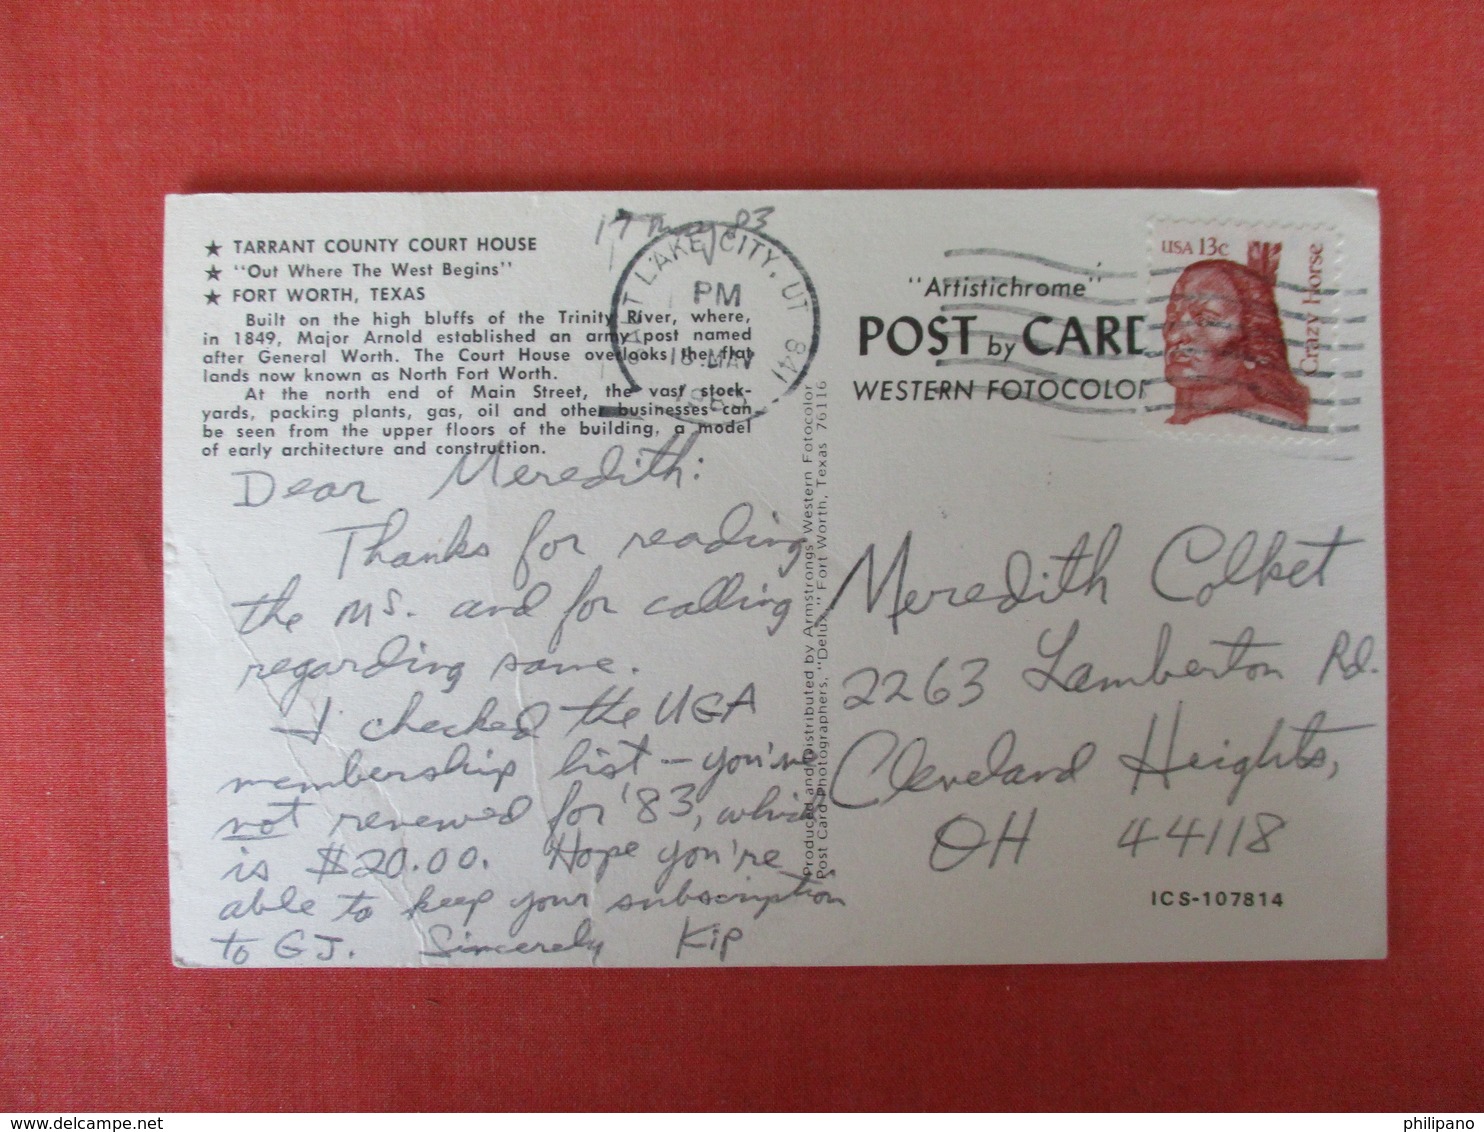 17 May 83
★ TARRANT COUNTY COURT HOUSE
★ "Out Where The West Begins"
★ FORT WORTH, TEXAS
Built on the high bluffs of the Trinity River, where,
in 1849, Major Arnold established an army post named
after General Worth. The Court House overlooks the flat
lands now known as North Fort Worth.
At the north end of Main Street, the vast stock-
yards, packing plants, gas, oil and other businesses can
be seen from the upper floors of the building, a model
of early architecture and construction.
SALT LAKE CITY, UT 841
PM
18 MAY
1983
Dear Meredith:
Thanks for reading
the MS. and for calling
regarding same.
I checked the UGA
membership list – you're
not renewed for '83, which
is $20.00. Hope you're
able to keep your subscription
to GJ. Sincerely Kip
Produced and Distributed by Armstrongs Western Fotocolor
Post Card Photographers, "Delux," Fort Worth, Texas 76116
"Artistichrome"
POST by CARD
WESTERN FOTOCOLOR
USA 13c
Crazy Horse
Meredith Colket
2263 Lamberton Rd.
Cleveland Heights,
OH 44118
ICS-107814
philipano